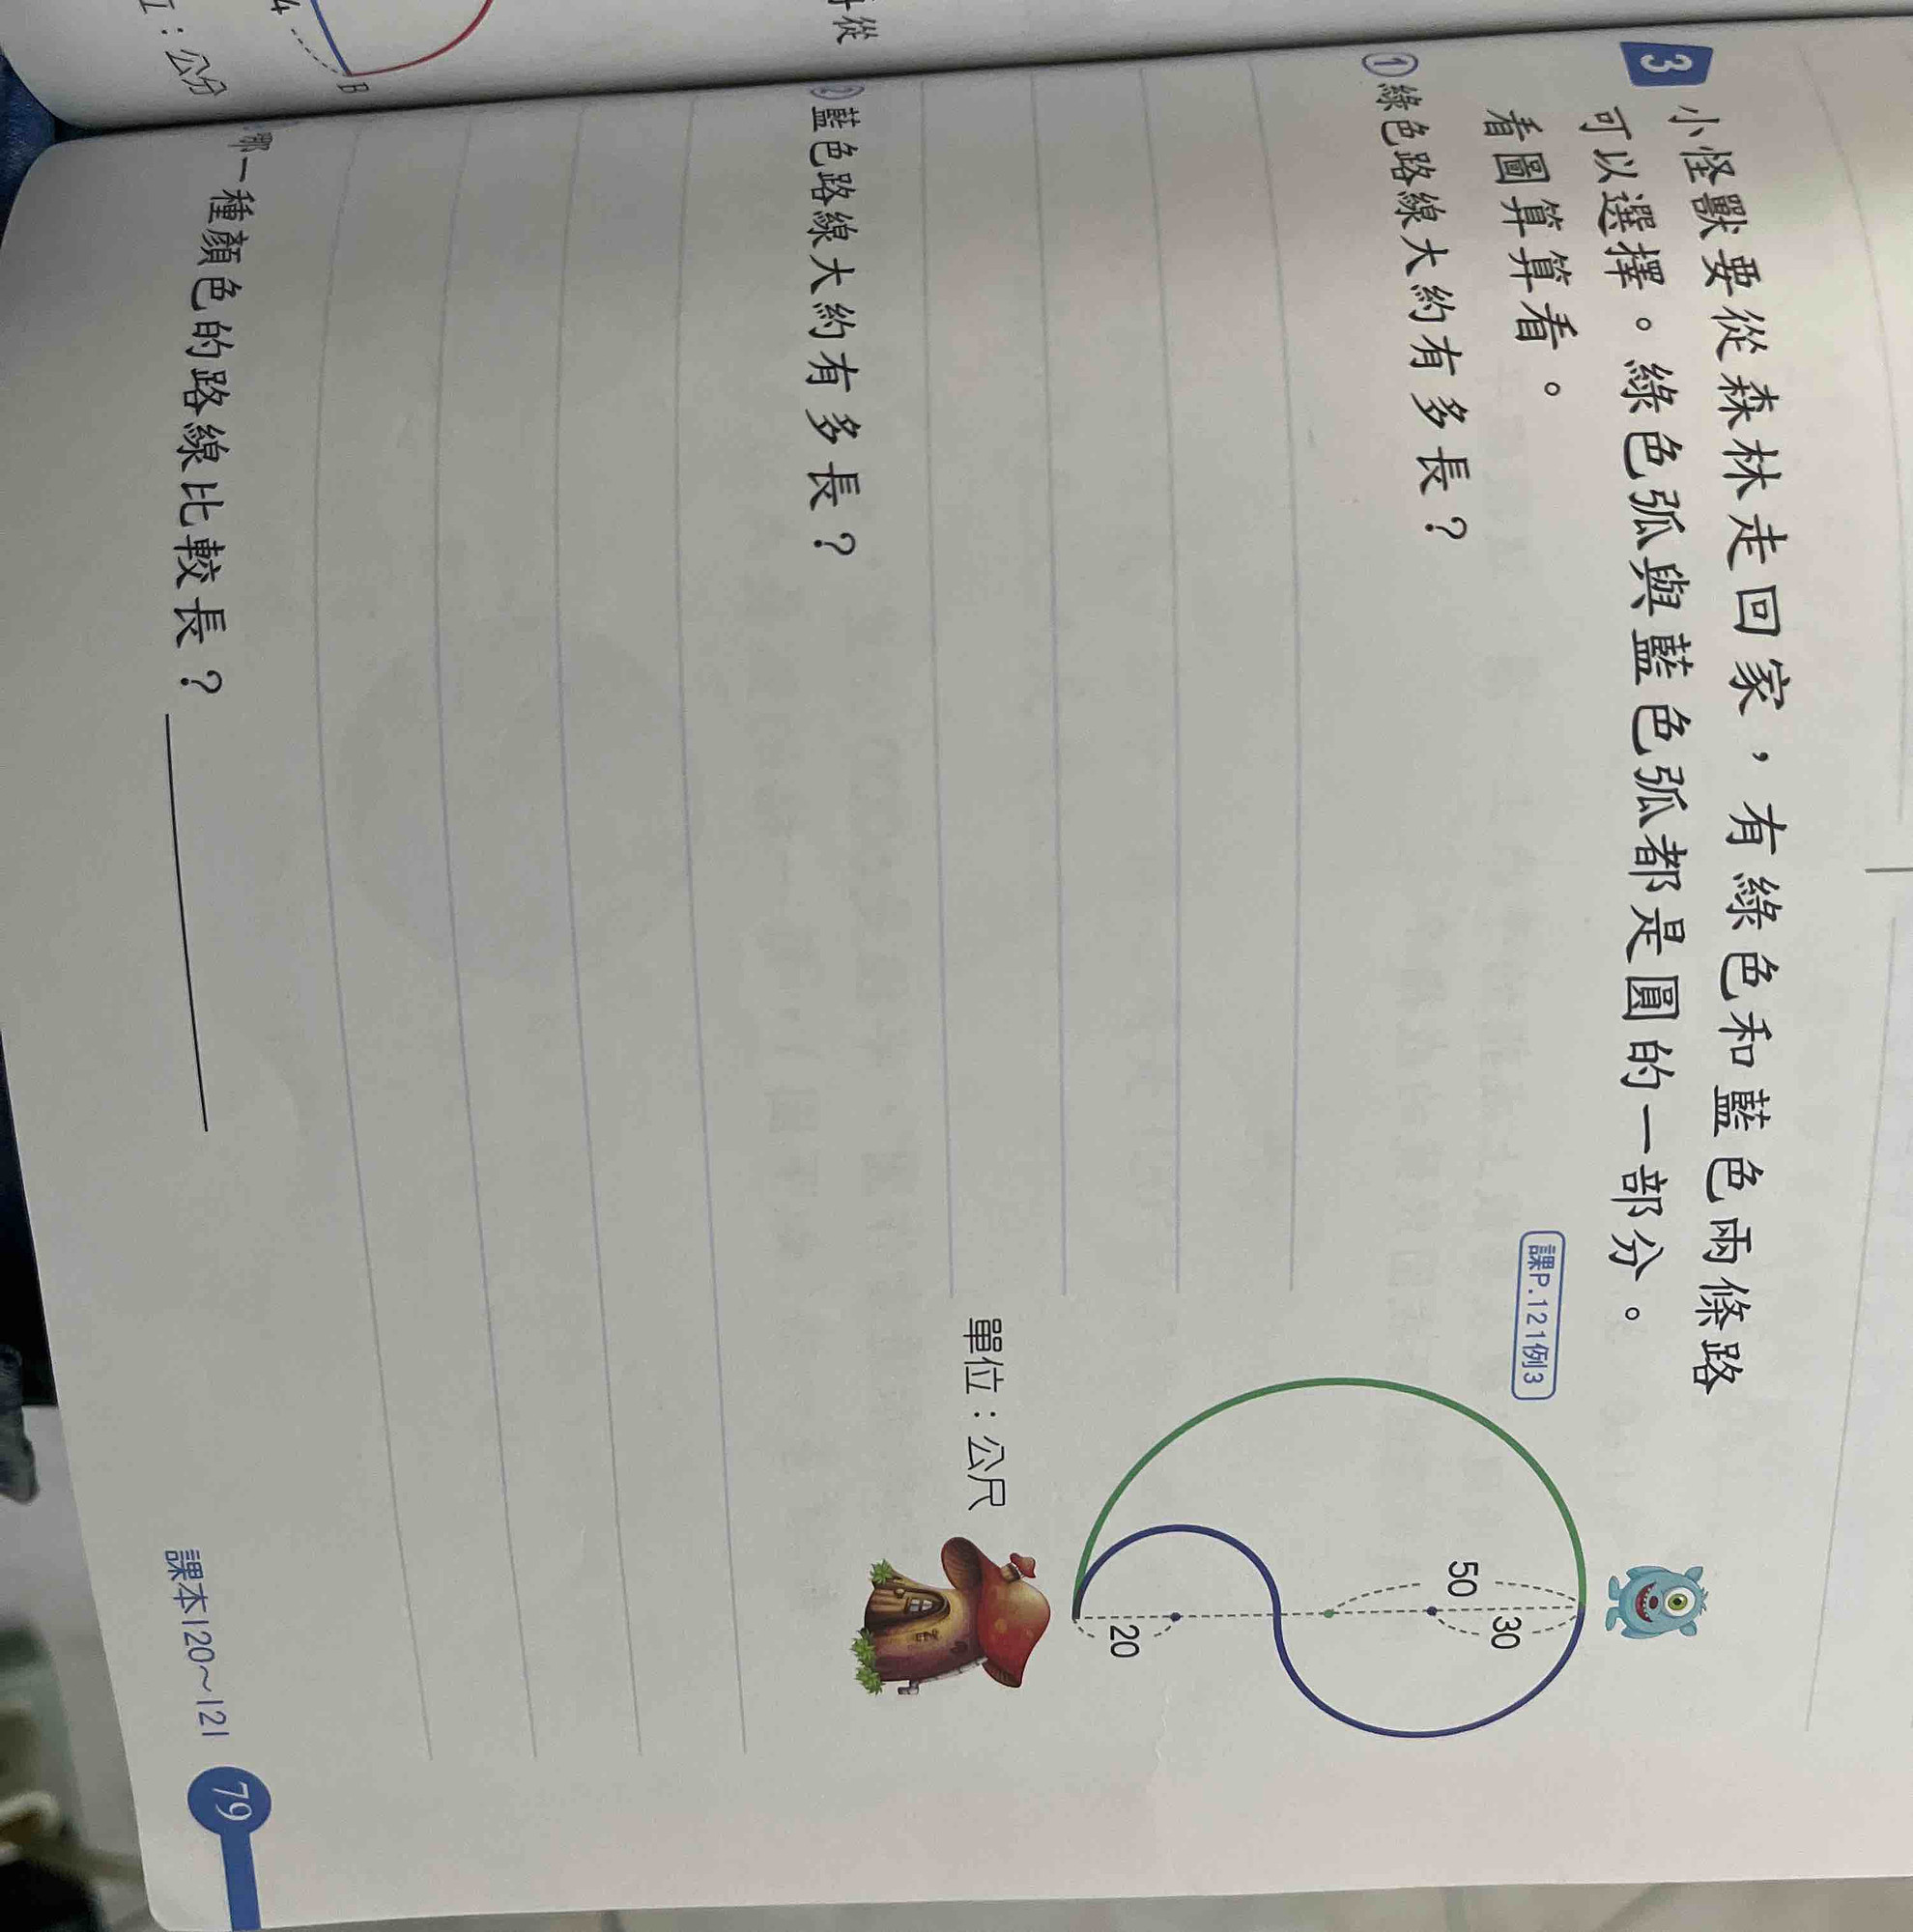 3 小怪獸要從森林走回家，有綠色和藍色兩條路
可以選擇。綠色弧與藍色弧都是圓的一部分。
看圖算算看。
課P.121例3
①綠色路線大約有多長？
50
30
20
單位：公尺
②藍色路線大約有多長？
哪一種顏色的路線比較長？
課本120～121
79
從
4
B
：公分